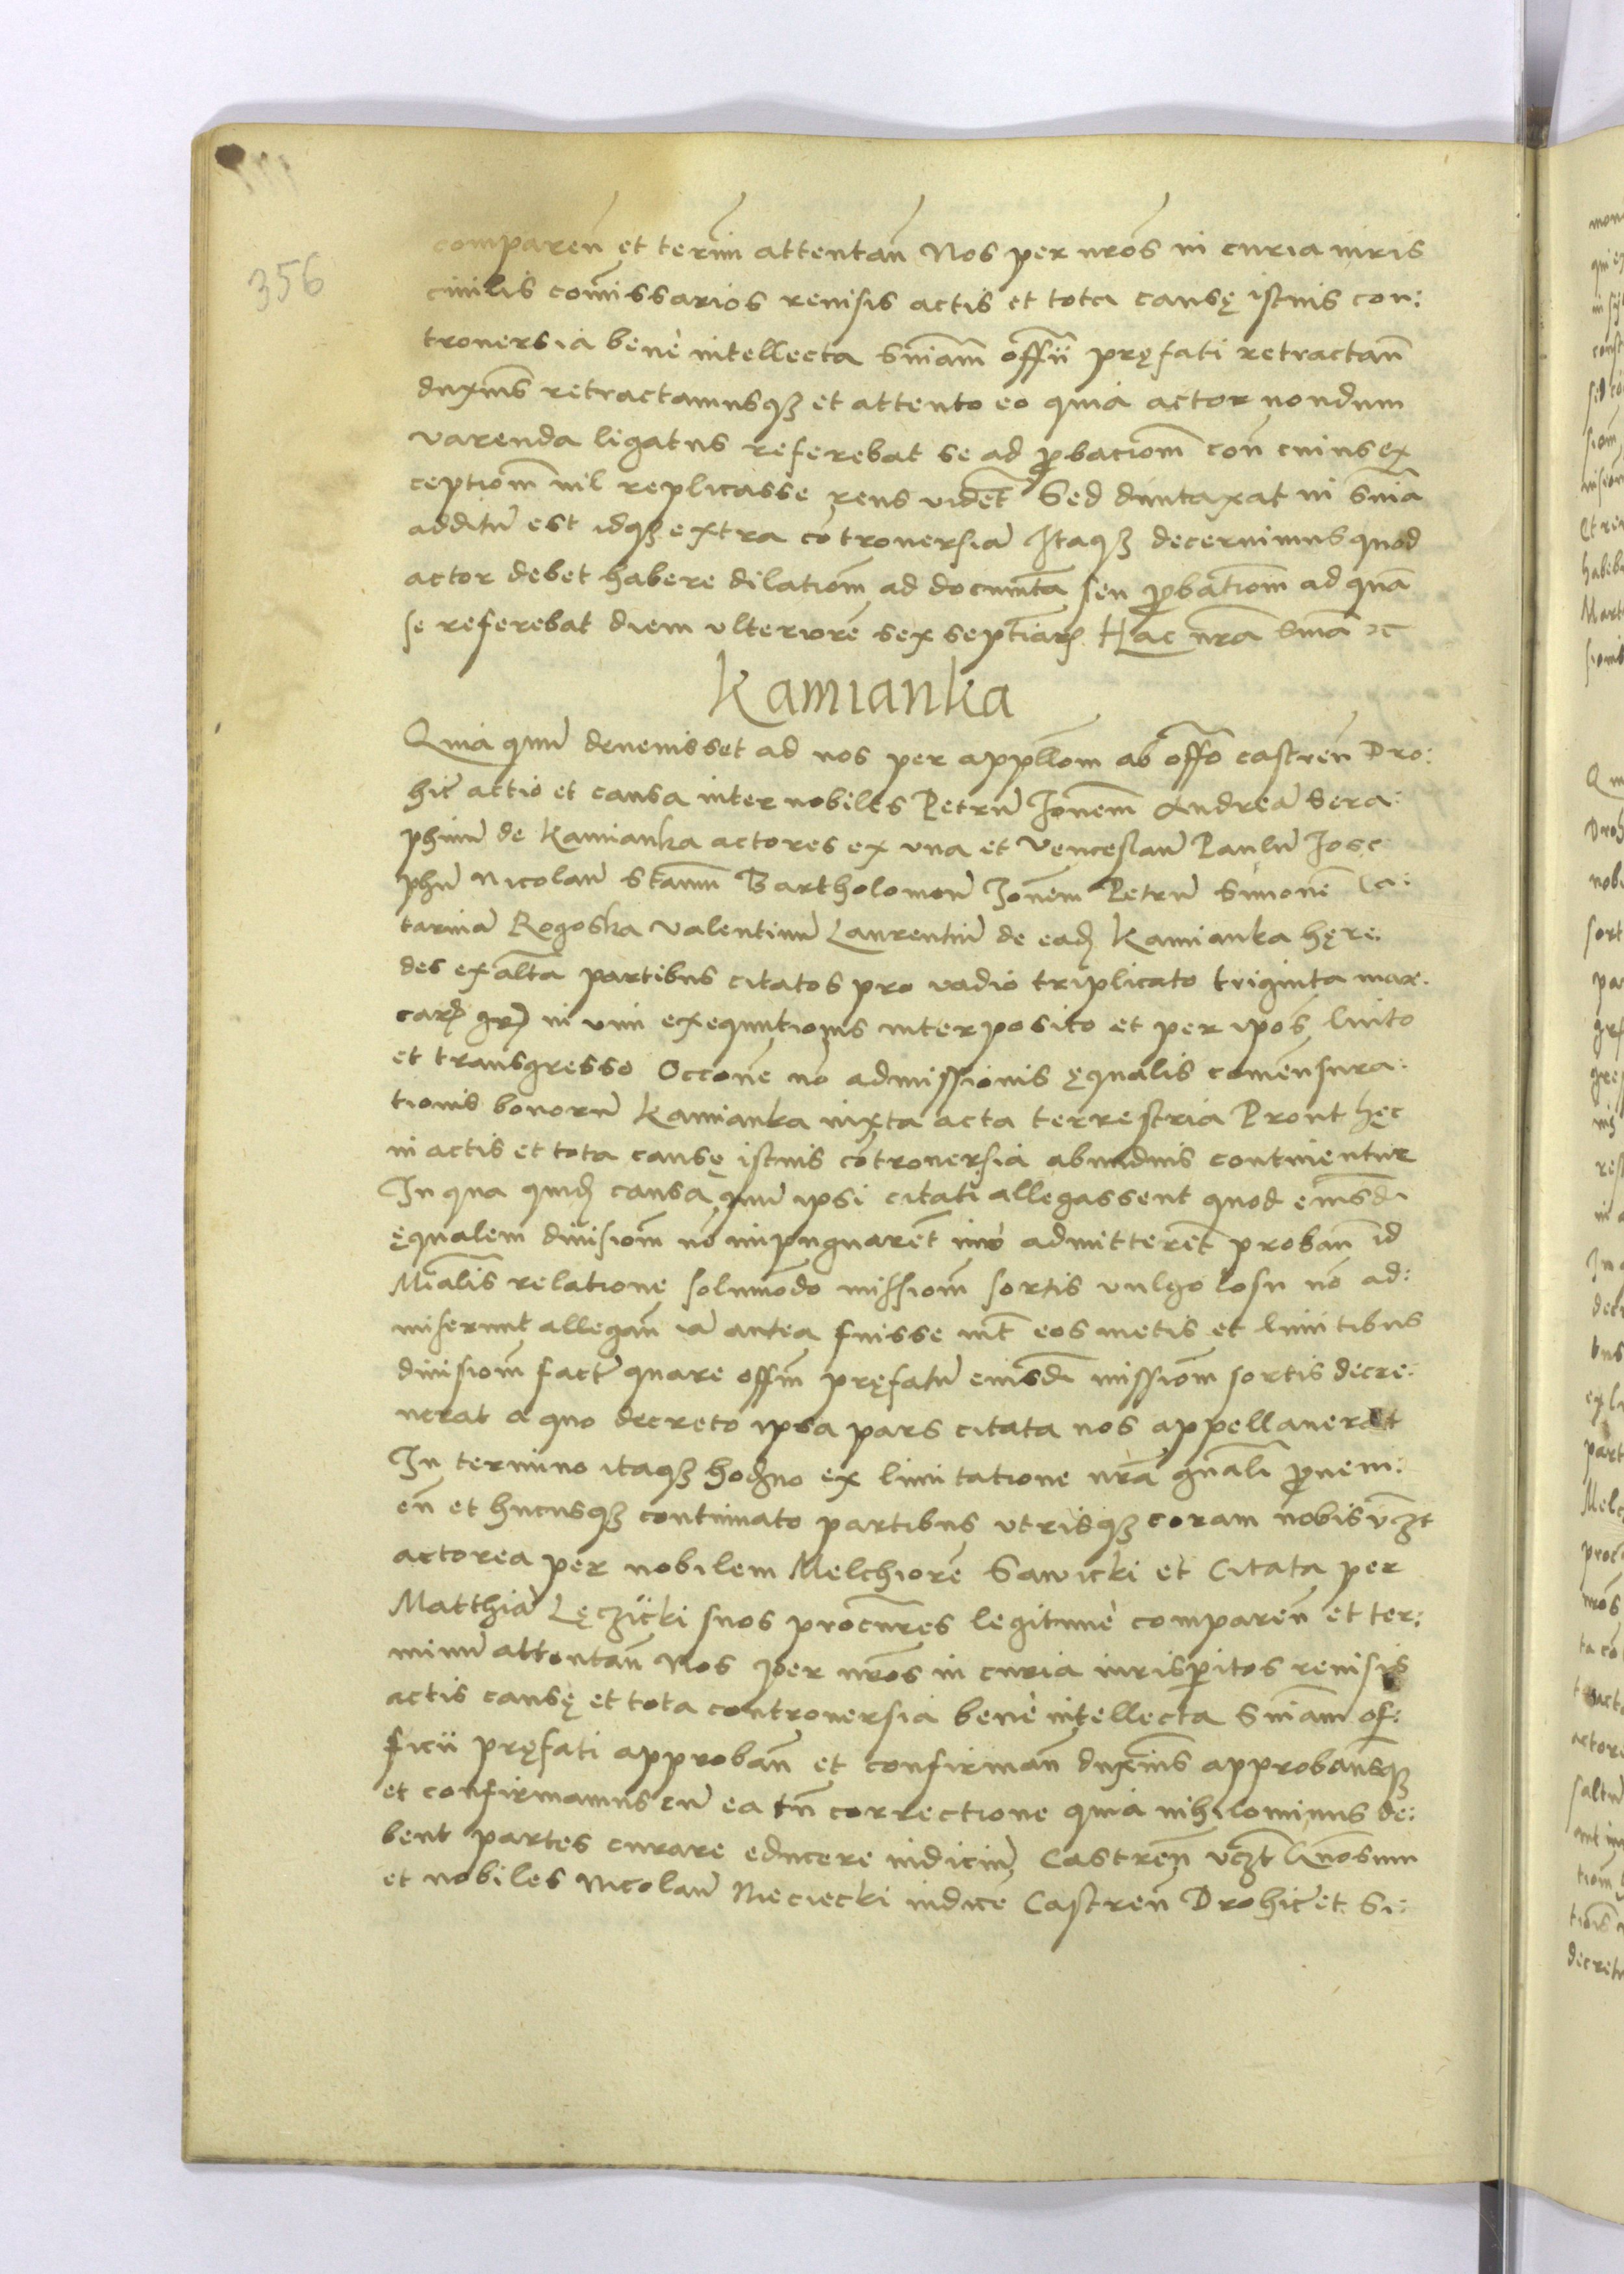 356
comparen̄ et term̄ attentan̄ Nos per nr̄os in curia iuris
ciuilis com̄issarios reuisis actis et tota causę istius con:
trouersia benè intellecta sn̄iam off̄ii pręfati retractan̄
duxim̄s retractamusqꝫ et attento eo quia actor nondum
varenda ligatus referebat se ad ꝓbaciom̄ con̄ cuius ex
ceptiom̄ nil replicasse reus videt̄ Sed duntaxat in sn̄ia
additū est idqꝫ extra cōtrouersiā Itaqꝫ decernimus quod
actor debet habere dilatiom̄ ad documt̄a seu ꝓbatiom̄ ad quā
se referebat diem vlteriorē sex septiāꝝ Hac nr̄a sn̄ia ꝛc̄
Kamianka
Quia quū deuenisset ad nos per appll̄om ab off̄o castren̄ Dro:
hic̄ actio et causa inter nobiles Petrū Jon̄em Andreā Sera:
phinū de Kamianka actores ex vna et Venceslaū Paulū Jose
phū Nicolaū Stan̄m Bartholomeū Joān̄em Petrū Simonē Ca:
tarinā Rogoska Valentinū Laurentiū de eadꝫ Kamianka hęre:
des ex alt̄a partibus citatos pro vadio triplicato triginta mar:
caꝝ gꝝ in vim exequutionis interposito et per ip̄os luito
et transgresso Occōne nō admissionis ęqualis comensura:
tionis bonorū Kamianka iuxta acta terrestria Prout hęc
in actis et tota causę istius cōtrouersia abundius continentur
In qua quidꝫ causa quū ipsi citati allegassent quod eiusd̄i
ęqualem diuisiom̄ nō impugnaret̄ imo admitteret̄ proban̄ id
Mīalis relatione solum̄odo missiom̄ sortis vulgo losu nō ad:
miserunt allegan̄ iā antea fuisse int̄ eos metis et limitibus
diuisiom̄ factā quare off̄m pręfatū eiusd̄i missiom̄ sortis decre:
uerat a quo decreto ipsa pars citata nos appellauerat
In termino itaqꝫ hod̄no ex limitatione nr̄a gn̄ali ꝓueni:
en̄ et hucusqꝫ continuato partibus vtrisqꝫ coram nobis vꝫt
actorea per nobilem Melchiorē Sawicki et Citata per
Matthiā Lęczicki suos procur̄es legitimè comparen̄ et ter:
minū attentan̄ Nos per nr̄os in curia iurisꝑitos reuisis
actis causę et tota controuersia benè intellecta sn̄iam of:
ficii pręfati approban̄ et confirman̄ duxim̄s approbamusqꝫ
et confirmamus cū ea tn̄ correctione quia nihilominus de:
bent partes curare educere iudiciū Castren̄ vꝫt Gn̄osum
et nobiles Nicolaū Nieciecki iudicē Castren̄ Drohic̄ et Si: